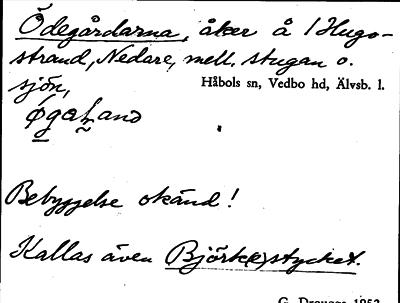 Ödegårdarna, åker å 1 Hugo-
strand, Nedare, mell. stugan o.
sjön,
Håbols sn, Vedbo hd, Älvsb. l.
Bebyggelse okänd!
Kallas även Björk(e)stycket.